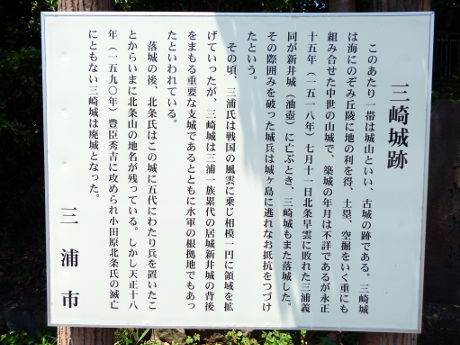 三崎城跡
このあたり一帯は城山といい、古城の跡である。三崎城
は海にのぞみ丘陵に地の利を得、土塁、空掘をいく重にも
組み合せた中世の山城で、築城の年月は不詳であるが永正
十五年(一五一八年)七月十一日北条早雲に敗れた三浦義
同が新井城(油壺)に亡ぶとき、三崎城もまた落城した。
その際囲みを破った城兵は城ヶ島に逃れなお抵抗をつづけ
たという。
その頃、三浦氏は戦国の風雲に乗じ相模一円に領域を拡
げていったが、三崎城は三浦一族累代の居城新井城の背後
をまもる重要な支城であるとともに水軍の根拠地でもあっ
たといわれている。
落城の後、北条氏はこの城に五代にわたり兵を置いたこ
とからいまに北条山の地名が残っている。しかし天正十八
年(一五九〇年)豊臣秀吉に攻められ小田原北条氏の滅亡
にともない三崎城は廃城となった。
三浦市